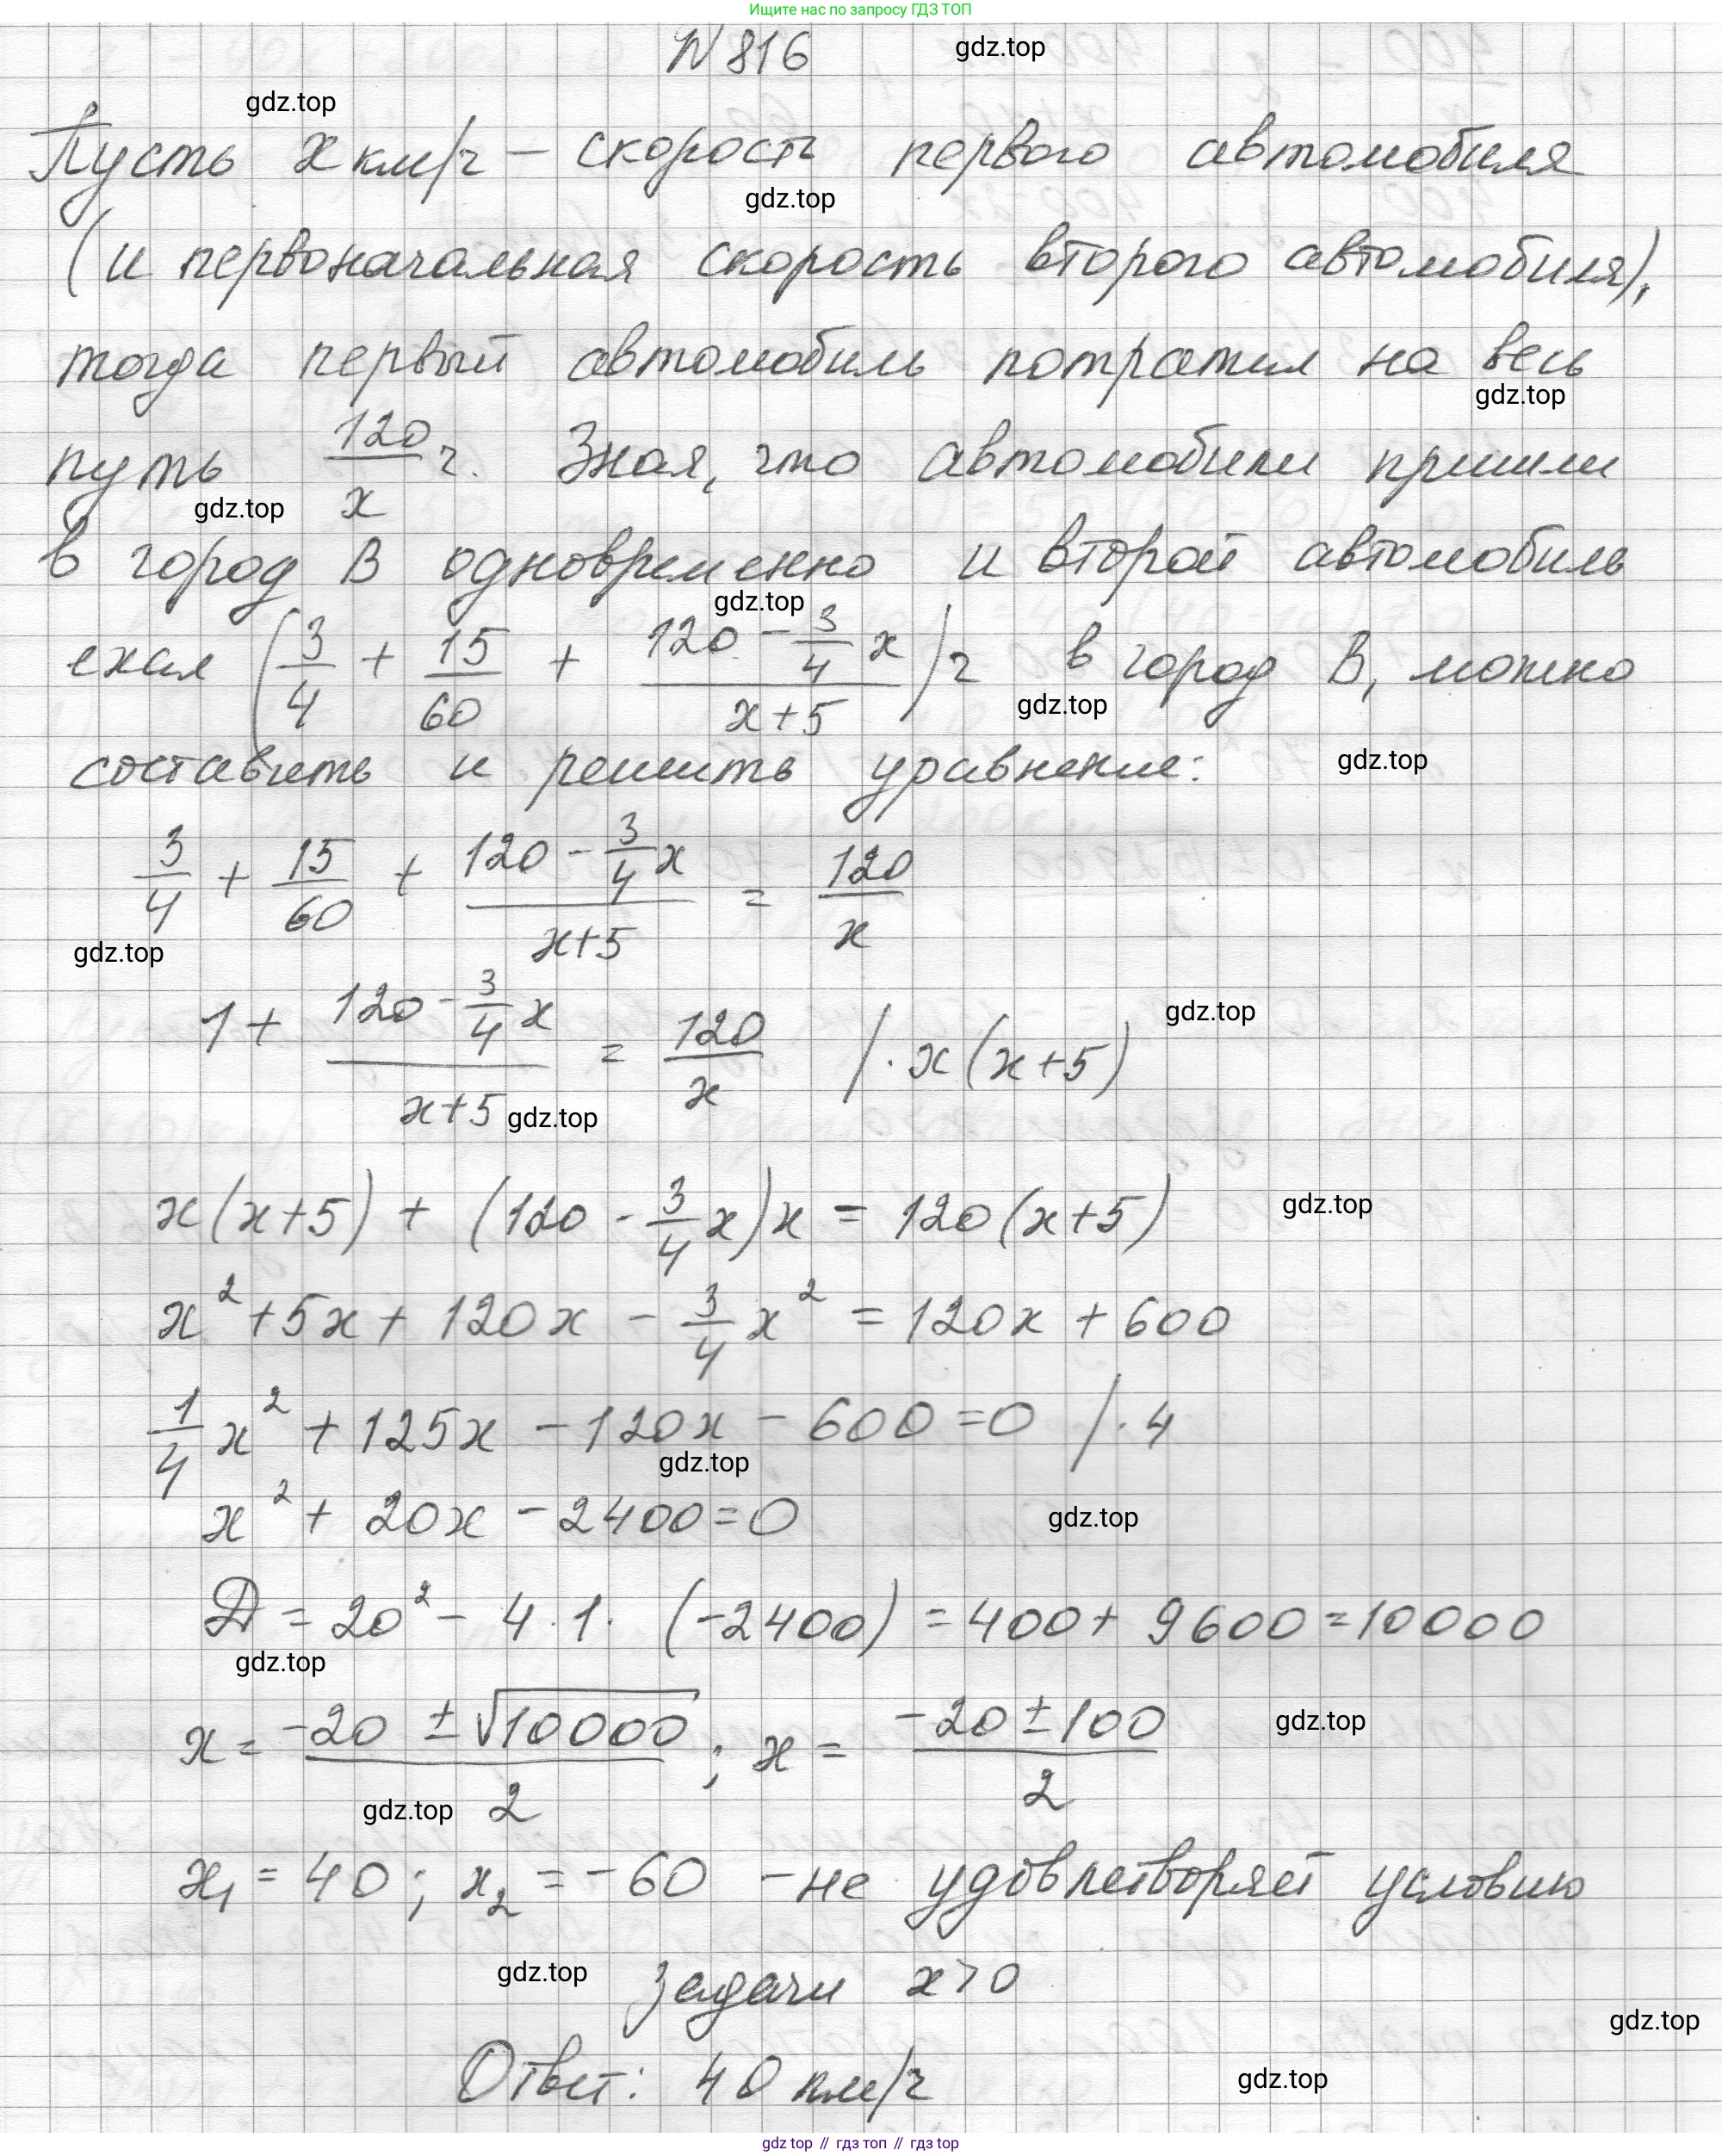 Ищите нас по запросу ГДЗ ТОП
N 816 gdz.top
gdz.top
Пусть x км/ч – скорость первого автомобиля
gdz.top
(и первоначальная скорость второго автомобиля),
тогда первый автомобиль потратил на весь
gdz.top
путь 120/x ч. Зная, что автомобили пришли
gdz.top
в город В одновременно и второй автомобиль
gdz.top
ехал (3/4 + 15/60 + (120 - 3/4 x)/(x+5)) ч в город В, можно
gdz.top
составить и решить уравнение: gdz.top
3/4 + 15/60 + (120 - 3/4 x)/(x+5) = 120/x
gdz.top
1 + (120 - 3/4 x)/(x+5) = 120/x /· x(x+5) gdz.top
gdz.top
x(x+5) + (120 - 3/4 x)x = 120(x+5) gdz.top
x² + 5x + 120x - 3/4 x² = 120x + 600
1/4 x² + 125x - 120x - 600 = 0 /· 4
gdz.top
x² + 20x - 2400 = 0 gdz.top
Д = 20² - 4·1·(-2400) = 400 + 9600 = 10000
gdz.top
x = (-20 ± √10000)/2 ; x = (-20 ± 100)/2 gdz.top
gdz.top
x₁ = 40; x₂ = -60 – не удовлетворяет условию
gdz.top задачи x>0
gdz.top
Ответ: 40 км/ч gdz.top
gdz top // гдз топ // gdz top